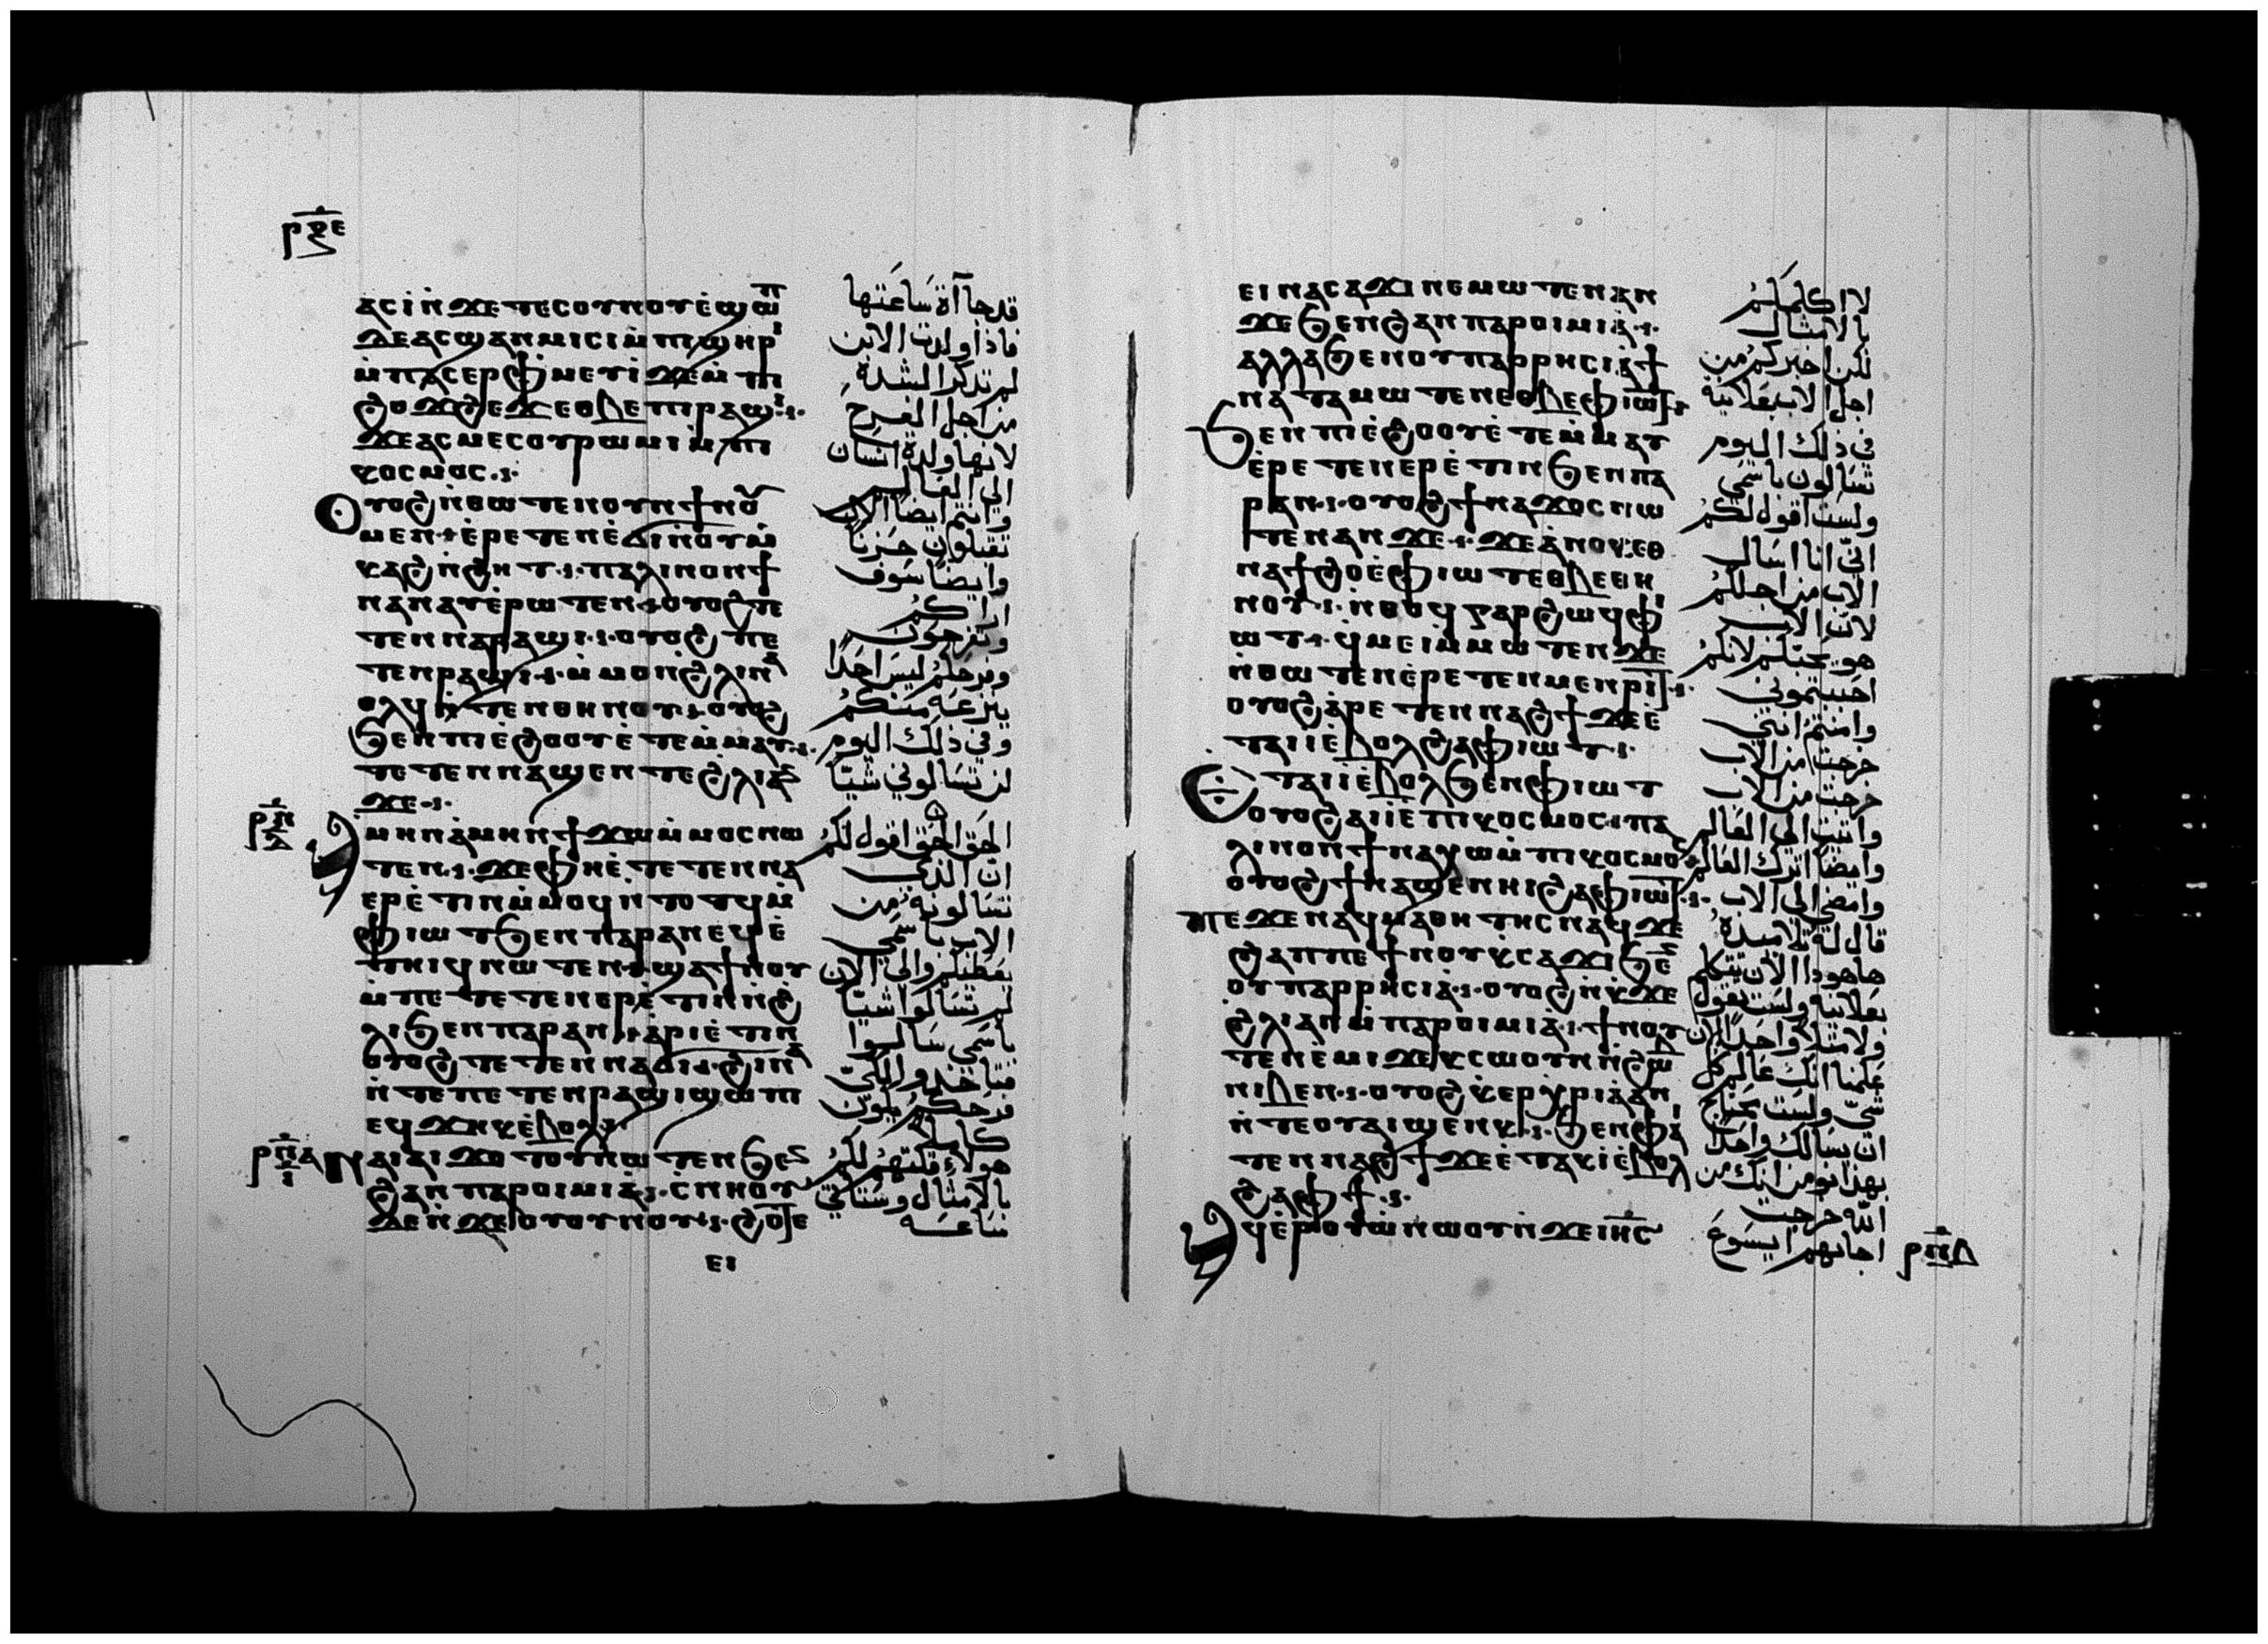 ⲣⲝⲉ
ⲁⲥⲓ̀ⲛ̀ϫⲉⲧⲉⲥⲟⲩⲛⲟⲩⲉ̀ϣⲱⲡ
ⲇⲉⲁⲥϣⲁⲛⲙⲓⲥⲓⲙ̀ⲡϣⲏⲣⲓ
ⲙ̀ⲡⲁⲥⲉⲣⲫ̀ⲙⲉⲩⲓ̀ϫⲉⲙ̀ⲡⲓ
ϩⲟϫϩⲉϫⲉⲑⲃⲉⲡⲓⲣⲁϣⲓ
ϫⲉⲁⲥⲙⲉⲥⲟⲩⲣⲱⲙⲓⲙ̀ⲡⲓ
ⲕⲟⲥⲙⲟⲥ
ⲟⲩⲟϩⲛ̀ⲑⲱⲧⲉⲛⲟⲩⲛϯⲛⲟⲩ
ⲙⲉⲛ ⲉ̀ⲣⲉⲧⲉⲛⲉ̀ϭⲓⲛ̀ⲟⲩⲙ̀
ⲕⲁϩⲛ̀ϩⲏⲧ ⲡⲁⲗⲓⲛⲟⲛϯ
ⲛⲁⲛⲁⲩⲉ̀ⲣⲱⲧⲉⲛ ⲟⲩⲟϩⲡⲉ
ⲧⲉⲛⲛⲁⲣⲁϣⲓ ⲟⲩⲟϩ ⲡⲉ
ⲧⲉⲛⲣⲁϣⲓ ⲙ̀ⲙⲟⲛϩⲗⲓⲛⲁ
ⲟⲗϥⲛ̀ⲧⲉⲛⲑⲏⲛⲟⲩ ⲟⲩⲟϩ
ϧⲉⲛⲡⲓⲉ̀ϩⲟⲟⲩⲉ̀ⲧⲉⲙ̀ⲙⲁⲩ
ⲧⲉⲧⲉⲛⲛⲁϣⲉⲛⲧⲉϩⲗⲓⲁⲛ
ϫⲉ
ⲁⲙⲏⲛⲁ̀ⲙⲏⲛϯϫⲱⲙ̀ⲙⲟⲥⲛⲱ
ⲧⲉⲛ ϫⲉⲫⲏⲉ̀ⲧⲉⲧⲉⲛⲛⲁ
ⲉⲣⲉ̀ⲧⲓⲛⲙ̀ⲙⲟϥⲛ̀ⲧⲟⲧϥⲙ̀
ⲫⲓⲱⲧϧⲉⲛⲡⲁⲣⲁⲛⲉϥⲉ̀
ⲧⲏⲓϥⲛⲱⲧⲉⲛ ϣⲁϯⲛⲟⲩ
ⲙ̀ⲡⲉⲧⲉⲧⲉⲛⲉⲣⲉ̀ⲧⲓⲛⲛ̀ϩ
ⲗⲓϧⲉⲛⲡⲁⲣⲁⲛ ⲁ̀ⲣⲓⲉ̀ⲧⲓⲛ
ⲟⲩⲟϩⲧⲉⲧⲉⲛⲛⲁϭⲓ ϩⲓⲛⲁ
ⲛ̀ⲧⲉⲡⲉⲧⲉⲛⲣⲁϣⲓϣⲱⲡⲓ
ⲉϥϫⲏⲕⲉ̀ⲃⲟⲗ
ⲛⲁⲓⲁⲓϫⲟⲧⲟⲩⲛⲱⲧⲉⲛϧⲉⲛ
ϩⲁⲛⲡⲁⲣⲟⲓⲙⲓⲁ̀ ⲥⲛⲏⲟⲩ
ⲇⲉⲛ̀ϫⲉⲟⲩⲟⲩⲛⲟⲩ ϩⲟⲧⲉ
ⲉⲓ
قد جاآة ساعتها
فاذا ولدت الابن
لم تذكر الشدة
من اجل الفرح
لانها ولدة انسان
الى العالم
وانتم ايضا الان
تقبلون حزنا
وايضا سوف
اراكم
وتفرحون
وفرحكم ليس احدا
ينزعه منكم
وفي ذلك اليوم
لن تسالوني شيئا
الحق الحق اقول لكم
ان الذي
تسالونه من
الاب باسمي
يعطيكم والى الان
لم تسالوا شيئا
باسمي سالوا
فتاخذوا لكي
فرحكم يكون
كاملا
هولاء قلتهم لكم
بالامثال وستاتي
ساعه
ⲉⲓⲛⲁⲥⲁϫⲓⲛⲉⲙⲱⲧⲉⲛⲁⲛ
ϫⲉϧⲉⲛϩⲁⲛⲡⲁⲣⲟⲓⲙⲓⲁ̀
ⲁⲗⲗⲁϧⲉⲛⲟⲩⲡⲁⲣⲣⲏⲥⲓⲁ̀ϯ
ⲛⲁⲧⲁⲙⲱⲧⲉⲛⲉⲑⲃⲉⲫⲓⲱⲧ
ϧⲉⲛⲡⲓⲉ̀ϩⲟⲟⲩⲉ̀ⲧⲉⲙ̀ⲙⲁⲩ
ⲉ̀ⲣⲉⲧⲉⲛⲉⲣⲉ̀ⲧⲓⲛϧⲉⲛⲡⲁ
ⲣⲁⲛ ⲟⲩⲟϩϯⲛⲁϫⲟⲥⲛⲱ
ⲧⲉⲛⲁⲛϫⲉ ϫⲉⲁ̀ⲛⲟⲕⲉⲑ
ⲛⲁϯϩⲟⲉ̀ⲫⲓⲱⲧⲉⲑⲃⲉⲑⲏ
ⲛⲟⲩ ⲛ̀ⲑⲟϥⲅⲁⲣϩⲱϥⲫⲓ
ⲱⲧ ϥ̀ⲙⲉⲓⲙ̀ⲙⲱⲧⲉⲛϫⲉ
ⲛ̀ⲑⲱⲧⲉⲛⲉ̀ⲣⲉⲧⲉⲛⲙⲉⲛⲣⲓⲧ
ⲟⲩⲟϩⲁ̀ⲣⲉⲧⲉⲛⲛⲁϩϯϫⲉⲉ̀
ⲧⲁⲓⲓ̀ⲉ̀ⲃⲟⲗϩⲁⲫⲓⲱⲧ
ⲉⲧⲁⲓⲓ̀ⲉ̀ⲃⲟⲗϧⲉⲛⲫⲓⲱⲧ
ⲟⲩⲟϩⲁⲓⲓ̀ⲉ̀ⲡⲓⲕⲟⲥⲙⲟⲥ ⲡⲁ
ⲗⲓⲛⲟⲛϯⲛⲁⲭⲱⲙ̀ⲡⲓⲕⲟⲥⲙⲟⲥ
ⲟⲩⲟϩϯⲛⲁϣⲉⲛⲏⲓϩⲁⲫⲓⲱⲧ
ⲡⲉϫⲉⲛⲁϥⲙⲁⲑⲏⲧⲏⲥⲛⲁϥϫⲉ
ϩⲁⲡⲡⲉϯⲛⲟⲩⲕ̀ⲥⲁϫⲓϧⲉⲛ
ⲟⲩⲡⲁⲣⲣⲏⲥⲓⲁ̀ ⲟⲩⲟϩⲛ̀ⲕϫⲉ
ϩⲗⲓⲁⲛⲙ̀ⲡⲁⲣⲟⲓⲙⲓⲁ̀ ϯⲛⲟⲩ
ⲧⲉⲛⲉ̀ⲙⲓϫⲉⲕⲥⲱⲟⲩⲛⲛ̀ϩⲱⲃ
ⲛⲓⲃⲉⲛ ⲟⲩⲟϩⲕ̀ⲉⲣⲭⲣⲓⲁ̀ⲁⲛ
ⲛ̀ⲧⲉⲟⲩⲁⲓϣⲉⲛⲕ ϧⲉⲛⲫⲁⲓ
ⲧⲉⲛⲛⲁϩϯϫⲉⲉ̀ⲧⲁⲕⲓ̀ⲉ̀ⲃⲟⲗ
ϩⲁⲫϯ
ⲁϥⲉ̀ⲣⲟⲩⲱ̀ⲛⲱⲟⲩⲛ̀ϫⲉⲓⲏⲥ
لا اكلمكم
بالامثال
لكن اخبركم من
اجل الاب بعلانية
في ذلك اليوم
تسالون باسمي
ولست اقول لكم
اني انا اسال
الاب من اجلكم
لان الاب
هو يحبكم لانكم
احببتموني
وامنتم انني
خرجت من الاب
خرجت من الاب
واتيت الى العالم
وايضا اترك العالم
وامضي الى الاب
قال له تلاميذه
ها هوذا الان تتكلم
بعلانية ولست تقول
ولا مثلا واحدا الان
علمنا انك عالم كل
شي ولست تحتاج
ان يسالك واحدا
بهذا نومن انك من
الله خرجت
اجابهم ايسوع